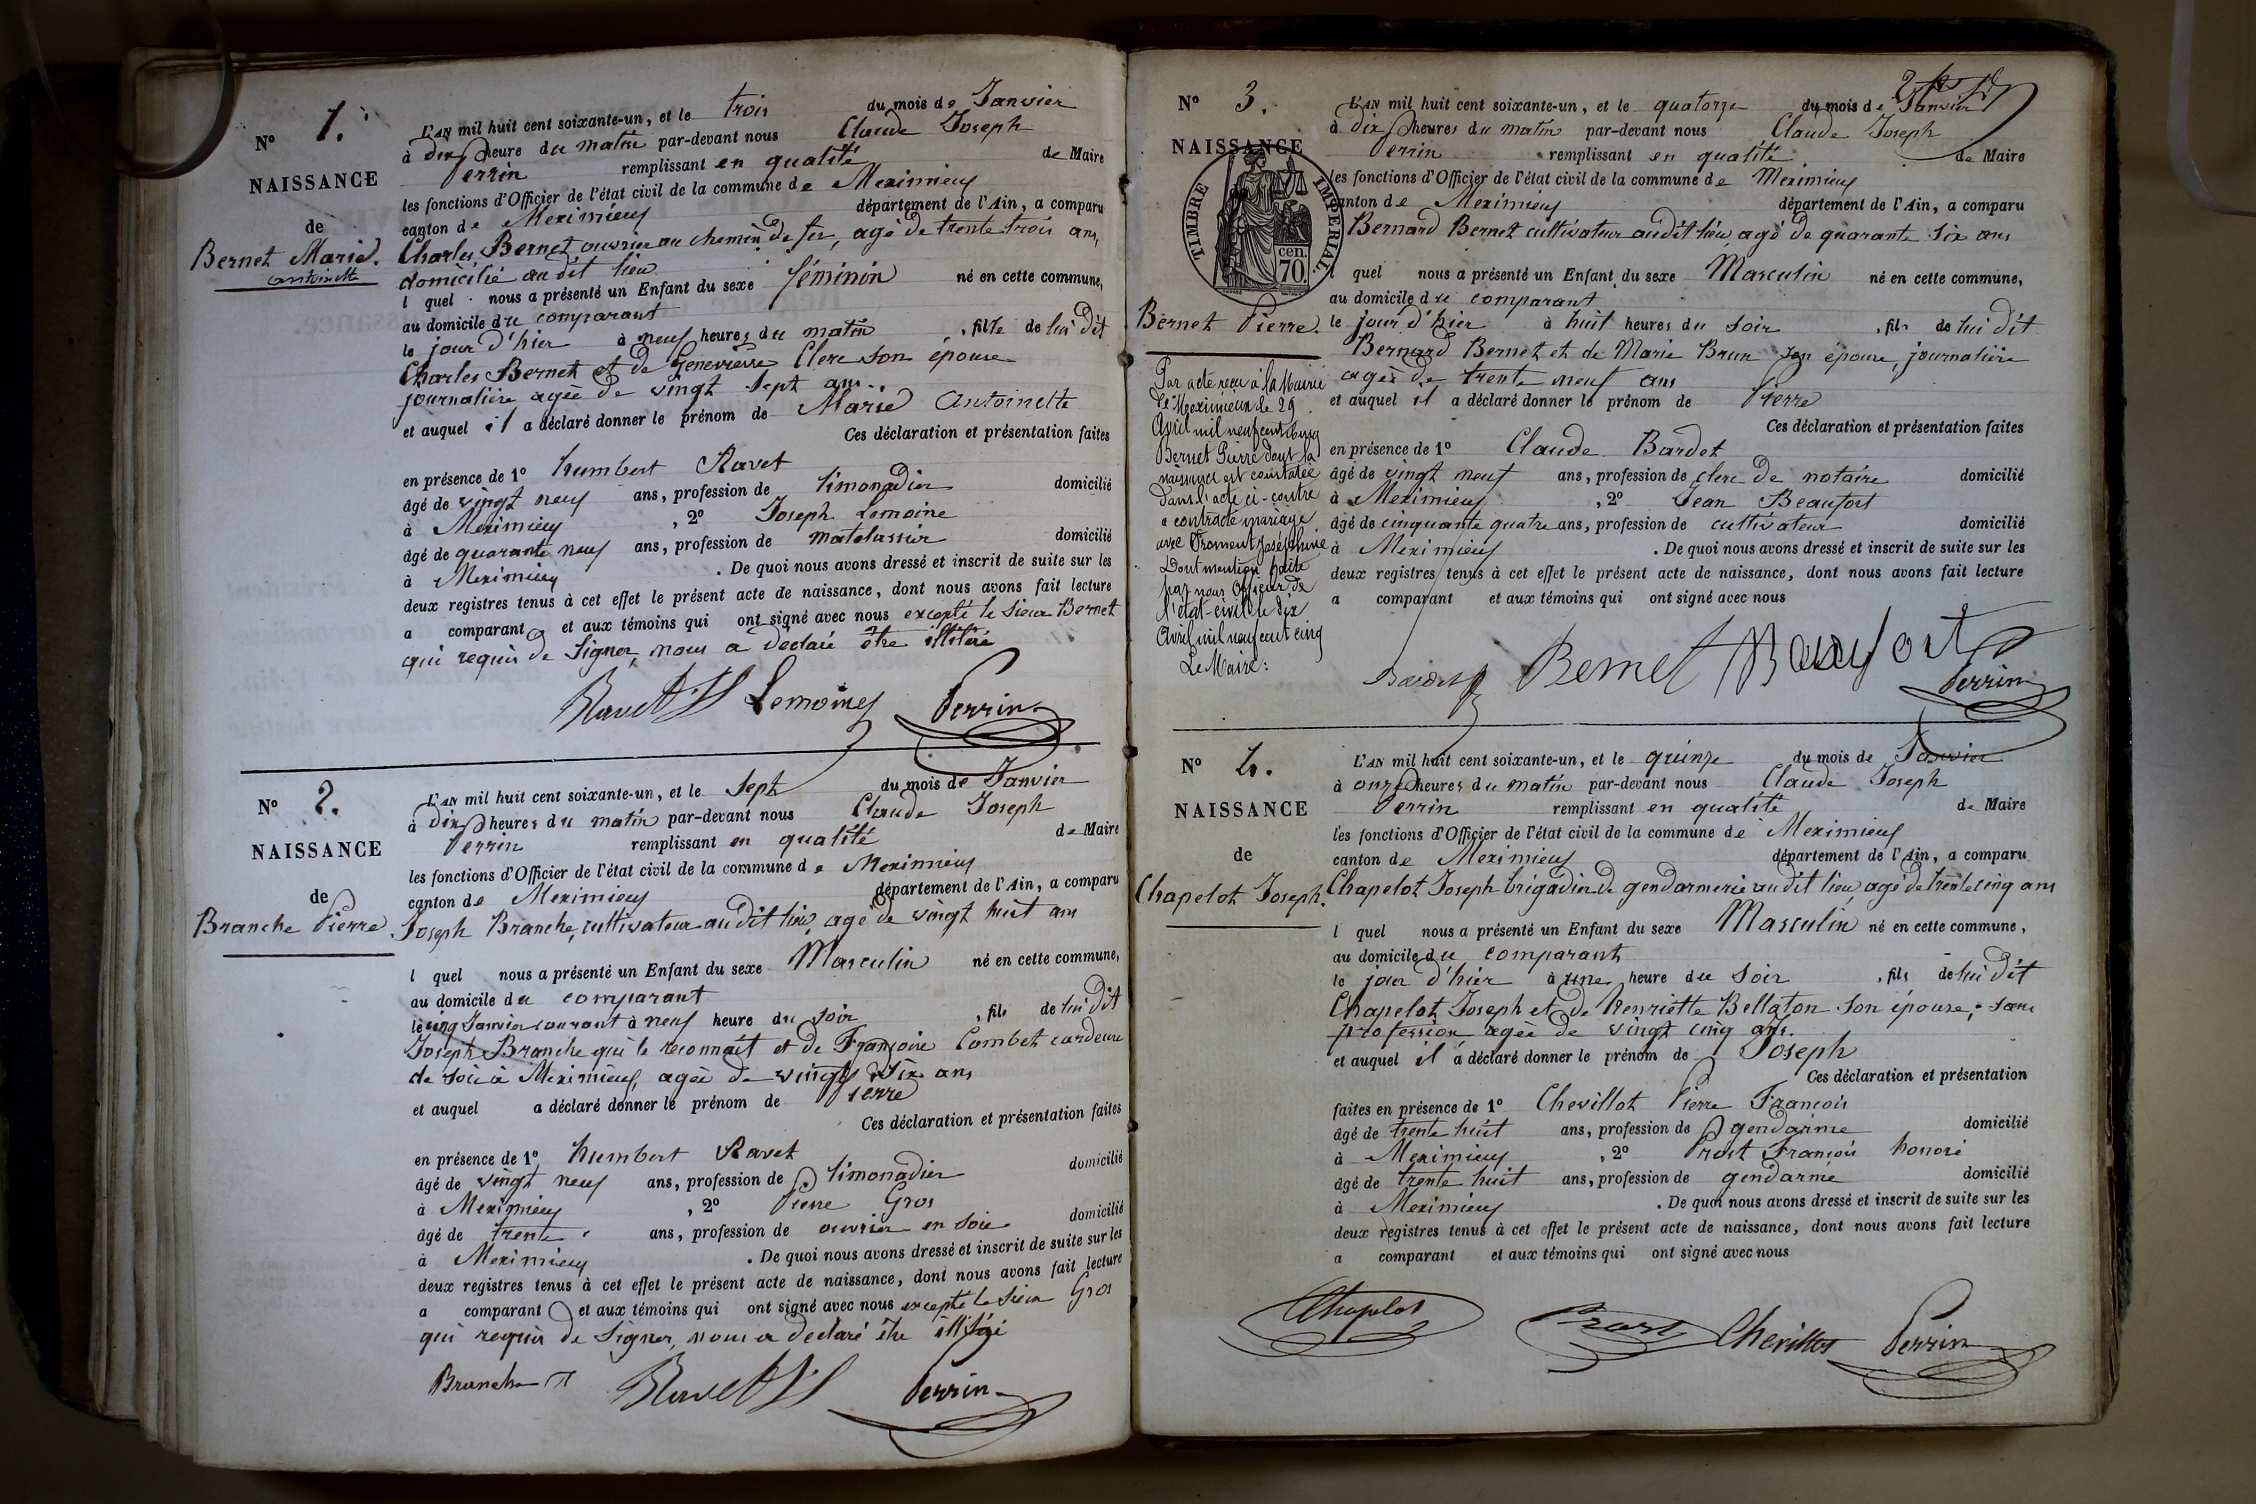 N° 1.
NAISSANCE
de
Bernet Marie
antoinette
L'AN mil huit cent soixante-un, et le trois du mois de Janvier
à dix heure du matin par-devant nous Claude Joseph
Perrin remplissant en qualité de Maire
les fonctions d'Officier de l'état civil de la commune de Meximieux
canton de Meximieux département de l'Ain, a comparu
Charles Bernet ouvrier au chemin de fer, agé de trente trois ans,
domicilié au dit lieu
l quel nous a présenté un Enfant du sexe féminin né en cette commune,
au domicile du comparant
le jour d'hier à neuf heures du matin , fille de lui dit
Charles Bernet et de Genevieve Clerc son épouse
journalière agée de vingt sept ans.
et auquel il a déclaré donner le prénom de Marie Antoinette
Ces déclaration et présentation faites
en présence de 1° humbert Ravet
âgé de vingt neuf ans, profession de limonadier domicilié
à Meximieux , 2° Joseph Lemoine
âgé de quarante neuf ans, profession de matelassier domicilié
à Meximieux . De quoi nous avons dressé et inscrit de suite sur les
deux registres tenus à cet effet le présent acte de naissance, dont nous avons fait lecture
a comparant et aux témoins qui ont signé avec nous excepté le sieur Bernet
qui requis de signer, nous a déclaré être illitéré
Ravet Lemoine Perrin
N° 2.
NAISSANCE
de
Branche Pierre
L'AN mil huit cent soixante-un, et le sept du mois de Janvier
à dix heures du matin par-devant nous Claude Joseph
Perrin remplissant en qualité de Maire
les fonctions d'Officier de l'état civil de la commune de Meximieux
canton de Meximieux département de l'Ain, a comparu
Joseph Branche, cultivateur au dit lieu, agé de vingt huit ans
l quel nous a présenté un Enfant du sexe Masculin né en cette commune,
au domicile du comparant
le cinq Janvier courant à neuf heure du soir , fils de lui dit
Joseph Branche qui le reconnait et de Françoise Combet cardeuse
de soie à Meximieux, agée de vingt six ans
et auquel a déclaré donner le prénom de Pierre
Ces déclaration et présentation faites
en présence de 1° humbert Ravet
âgé de vingt neuf ans, profession de limonadier domicilié
à Meximieux , 2° Pierre Gros
âgé de trente ans, profession de ouvrier en soie domicilié
à Meximieux . De quoi nous avons dressé et inscrit de suite sur les
deux registres tenus à cet effet le présent acte de naissance, dont nous avons fait lecture
a comparant et aux témoins qui ont signé avec nous excepté le sieur Gros
qui requis de signer, nous a déclaré être
Branche Ravet Perrin
N° 3.
NAISSANCE
TIMBRE IMPERIAL.
cen.
70.
Bernet Pierre.
Par acte reçu à la Mairie
de Meximieux le 29
Avril mil neuf cent cinq
Bernet Pierre dont la
naissance est constatée
dans l'acte ci-contre
a contracté mariage
avec Froment Joséphine
Dont mention faite
par nous Officier de
l'état-civil le dix
Avril mil neuf cent cinq
Le Maire:
L'AN mil huit cent soixante-un, et le quatorze du mois de Janvier
à dix heures du matin par-devant nous Claude Joseph
Perrin remplissant en qualité de Maire
les fonctions d'Officier de l'état civil de la commune de Meximieux
canton de Meximieux département de l'Ain, a comparu
Bernard Bernet cultivateur au dit lieu, agé de quarante six ans
l quel nous a présenté un Enfant du sexe Masculin né en cette commune,
au domicile du comparant
le jour d'hier à huit heures du soir , fils de lui dit
Bernard Bernet et de Marie Brun son épouse, journalière
agée de trente neuf ans
et auquel il a déclaré donner le prénom de Pierre
Ces déclaration et présentation faites
en présence de 1° Claude Bardet
âgé de vingt neuf ans, profession de clerc de notaire domicilié
à Meximieux , 2° Jean Beaufort
âgé de cinquante quatre ans, profession de cultivateur domicilié
à Meximieux . De quoi nous avons dressé et inscrit de suite sur les
deux registres tenus à cet effet le présent acte de naissance, dont nous avons fait lecture
a comparant et aux témoins qui ont signé avec nous
Bardet Bernet Beaufort Perrin
N° 4.
NAISSANCE
de
Chapelot Joseph.
L'AN mil huit cent soixante-un, et le quinze du mois de Janvier
à onze heures du matin par-devant nous Claude Joseph
Perrin remplissant en qualité de Maire
les fonctions d'Officier de l'état civil de la commune de Meximieux
canton de Meximieux département de l'Ain, a comparu
Chapelot Joseph brigadier de gendarmerie au dit lieu, agé de trente cinq ans
l quel nous a présenté un Enfant du sexe Masculin né en cette commune,
au domicile du comparant
le jour d'hier à une heure du soir , fils de lui dit
Chapelot Joseph et de henriette Bellaton son épouse, sans
profession agée de vingt cinq ans.
et auquel il a déclaré donner le prénom de Joseph
Ces déclaration et présentation
faites en présence de 1° Chevillot Pierre François
âgé de trente huit ans, profession de gendarme domicilié
à Meximieux , 2° Prost François honoré
âgé de trente huit ans, profession de gendarme domicilié
à Meximieux . De quoi nous avons dressé et inscrit de suite sur les
deux registres tenus à cet effet le présent acte de naissance, dont nous avons fait lecture
a comparant et aux témoins qui ont signé avec nous
Chapelot Prost Chevillot Perrin